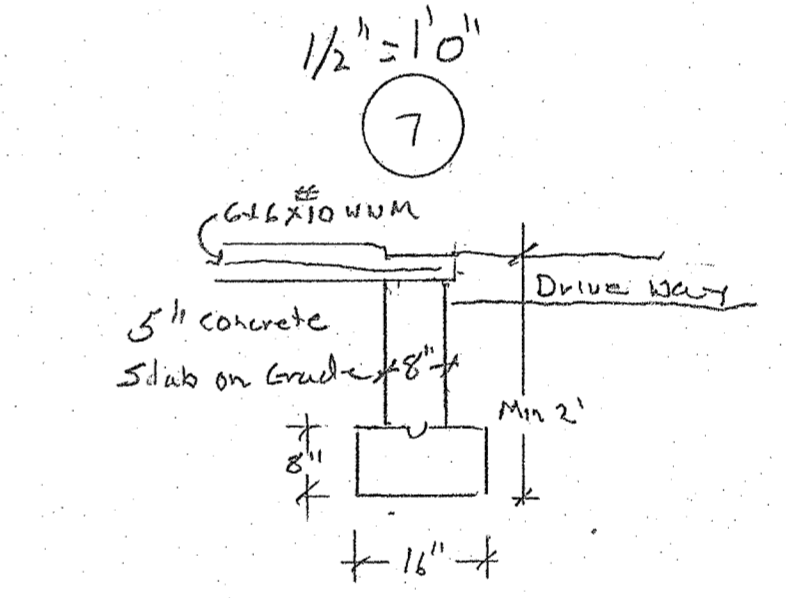 1/2" = 1'0"
7
6x6 x #10 WWM
Drive Way
5" concrete
Slab on Grade
8"
Min 2'
8"
16"